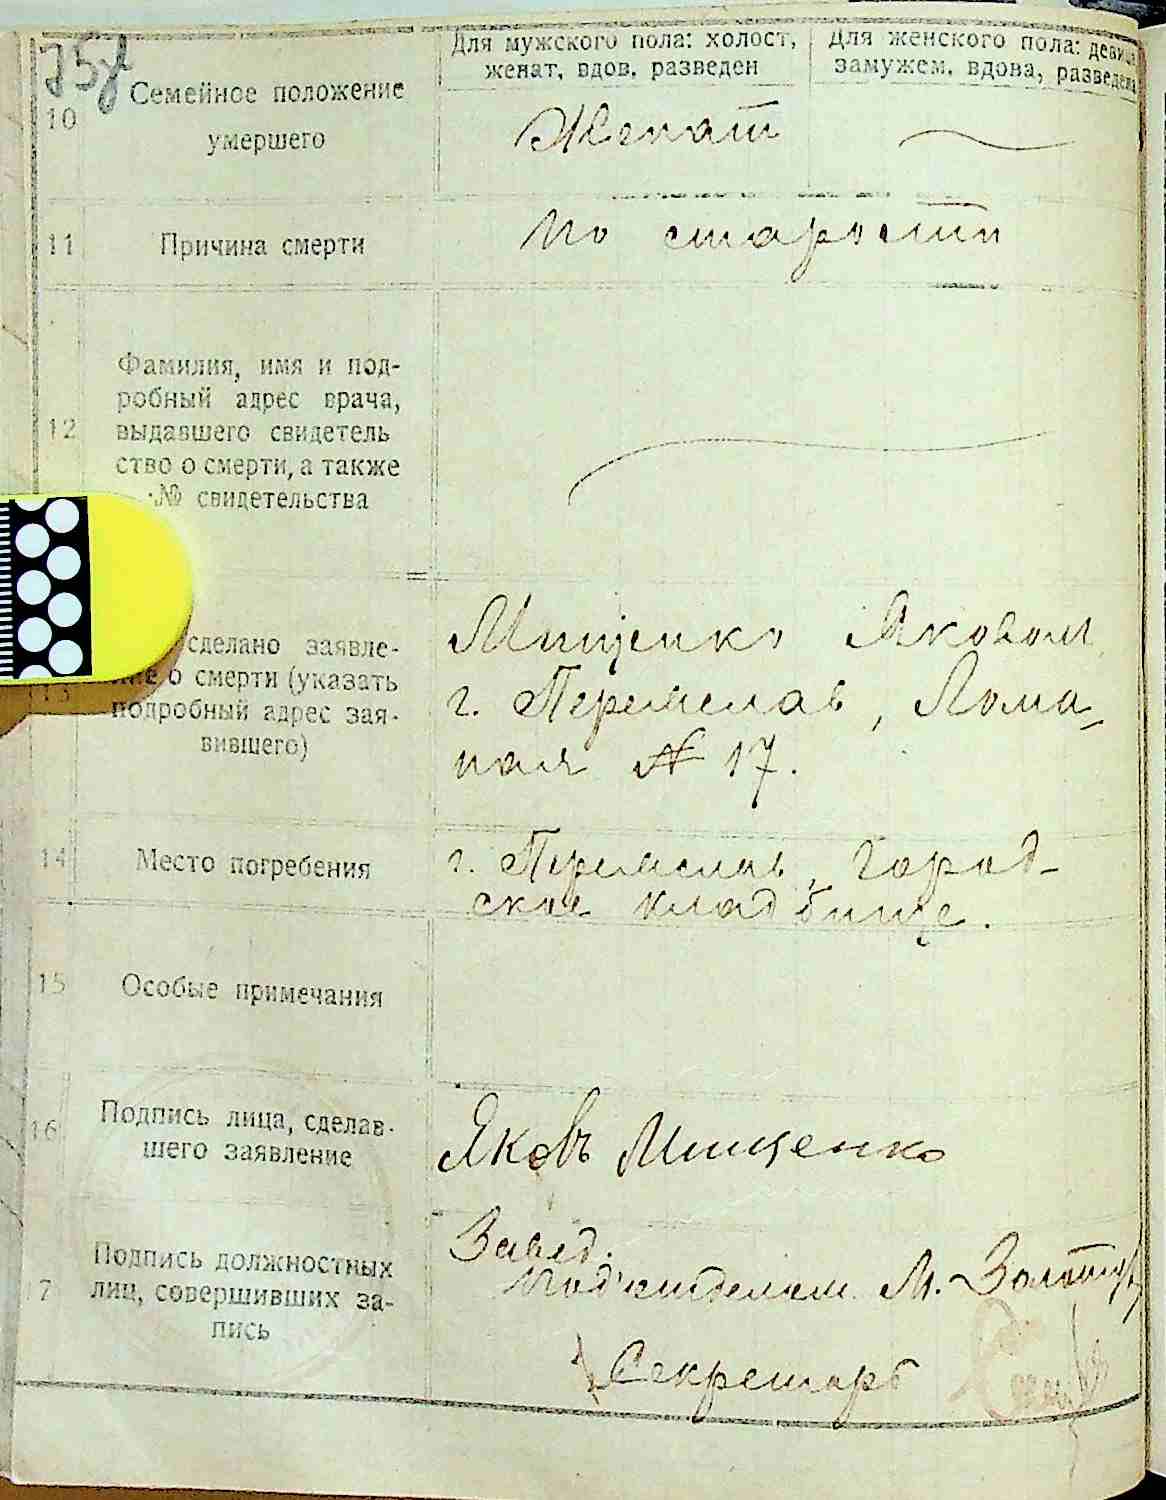 Для мужского пола: холост,
женат, вдов, разведен
Для женского пола: девица
замужем, вдова, разведена
10
Семейное положение
умершего
Женат
11
Причина смерти
По старости
12
Фамилия, имя и под-
робный адрес врача,
выдавшего свидетель
ство о смерти, а также
№ свидетельства
13
сделано заявле-
ние о смерти (указать
подробный адрес зая-
вившего)
Мищенко Яковом
г. Переяслав,
ная № 17.
14
Место погребения
г. Переяслав, Город-
ское кладбище.
15
Особые примечания
16
Подпись лица, сделав-
шего заявление
Яковъ Мищенко
17
Подпись должностных
лиц, совершивших за-
пись
Завед.
Под'отделом М.
Секретарь